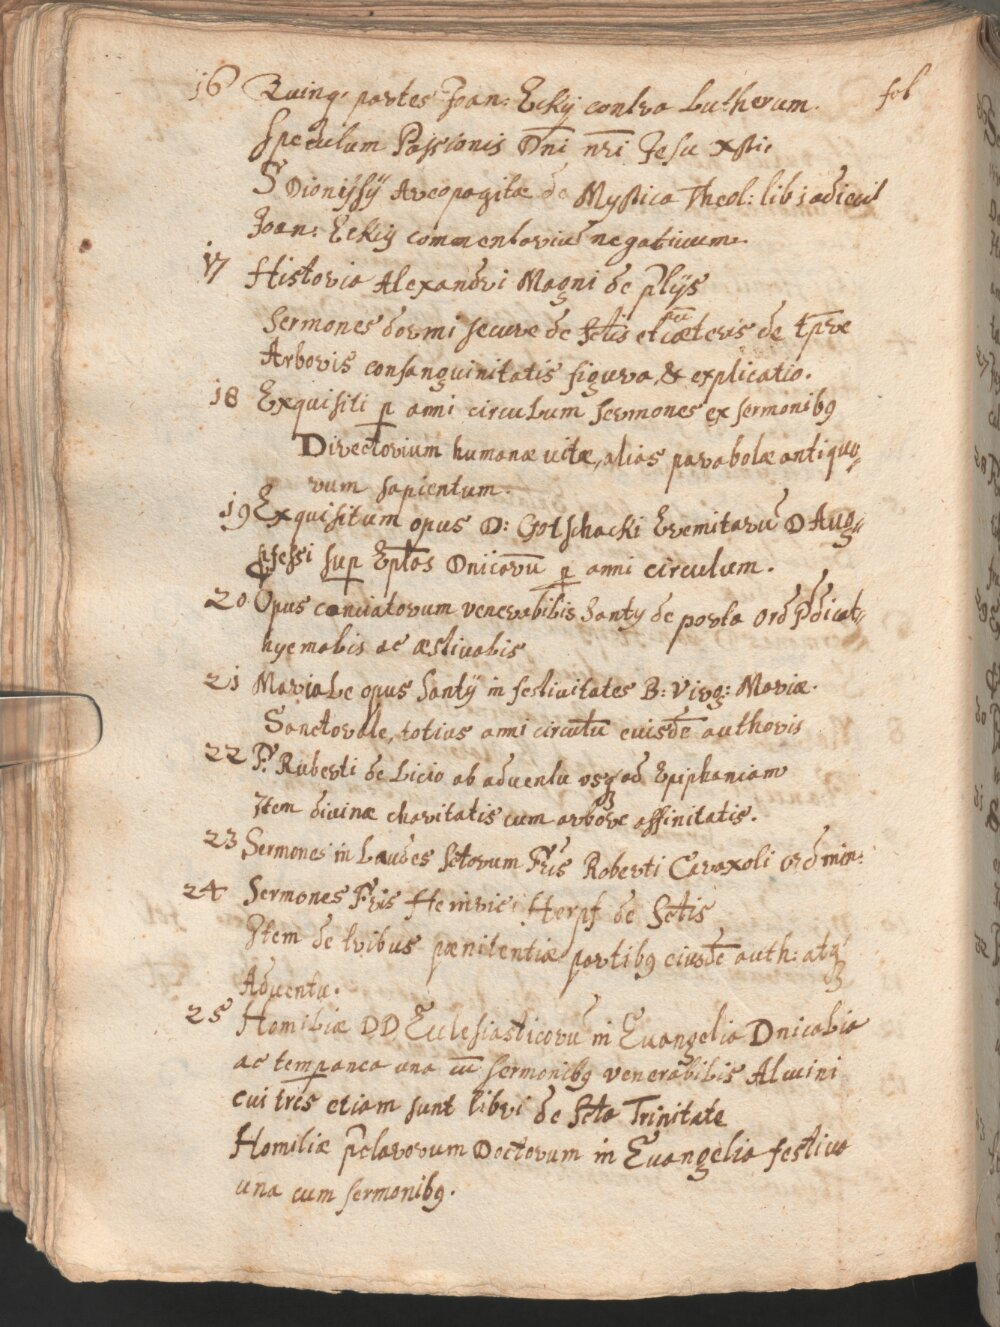 16 Quinq; partes Joan: Eckij contra Lutherum. fol
Speculum Passionis Dñi nri Jesu Xpti
S Dionijsij Areopagitæ de Mystica Theol: lib 1 adiecit
Joan: Eckij commentariũ negatiuum.
17 Historia Alexandri Magni de plijs
Sermones dormi secure de Sctis et cæteris de tpre
Arboris consanguinitatis figura, & explicatio.
18 Exquisiti p anni circulum sermones ex sermonibq
Directorium humanæ vitæ, alias parabolæ antiquo,,
rum sapientum.
19 Exquisitum opus D: Gotschacki Eremitarũ D Aug,,
pfessi sup Eplas Dnicarũ p anni circulum.
20 Opus concionatorum venerabilis Santij de porta Ord Pdicat,,
hyemalis ac æstiualis
21 Mariale opus Santij in festiuitates B: Virg: Mariæ.
Sanctorale, totius anni circulũ eiusdẽ authoris
22 F. Ruberti de Licio ab aduentu usq ad Epiphaniam
Item diuinæ charitatis cum arbore affinitatis.
23 Sermones in Laudes Sctorum Fris Roberti Caraxoli ord min:
24 Sermones Fris Heinrici Herpf de Sctis
Item de tribus pænitentiæ partibq eiusdẽ auth: atq
Aduentu.
25 Homiliæ DD Ecclesiasticorũ in Euangelia Dnicalia
ac tempanea una cũ sermonibq venerabilis Alcuini
cui tres etiam sunt libri de Scta Trinitate
Homiliæ pclarorum Doctorum in Euangelia festiua
una cum sermonibq.